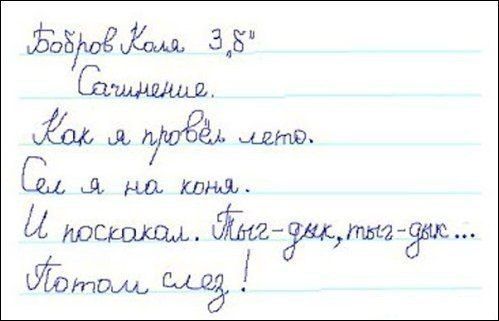 Бобров Коля 3 „б“
Сочинение.
Как я провёл лето.
Сел я на коня.
И поскакал. Тыг-дык, тыг-дык...
Потом слез!